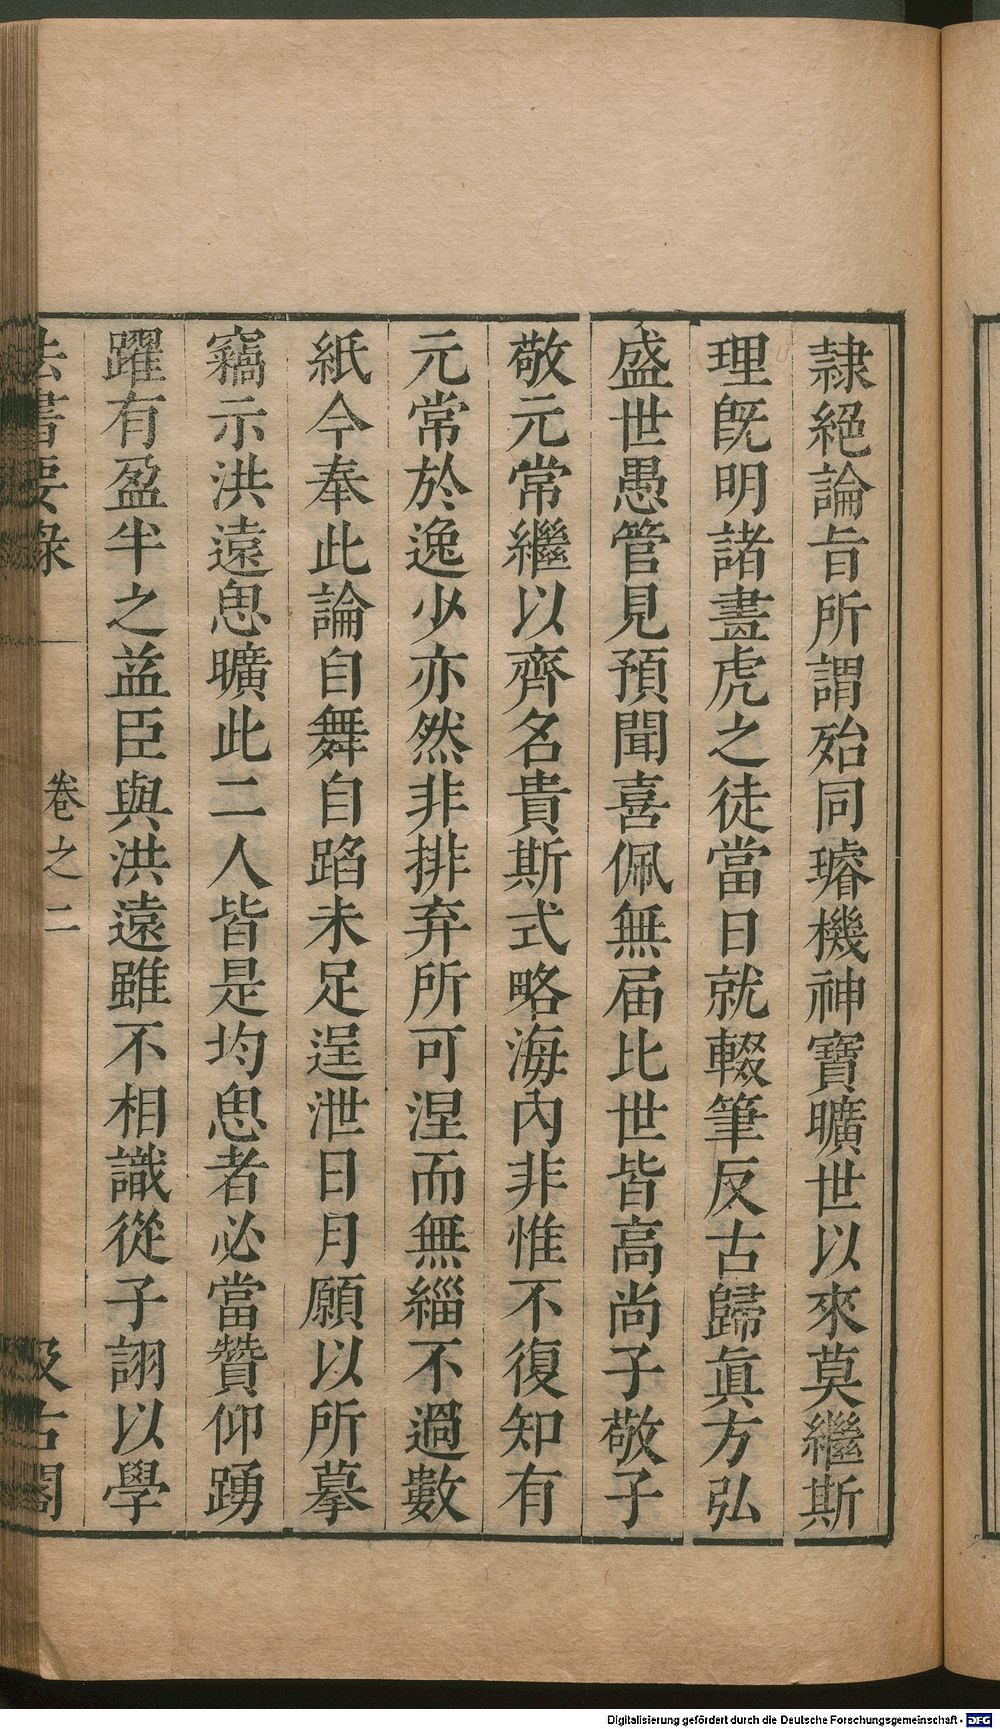 隸絕論旨所謂殆同璿機神寶曠世以來莫繼斯
理旣明諸畫虎之徒當日就輟筆反古歸眞方弘
盛世愚管見預聞喜佩無届比世皆高尚子敬子
敬元常繼以齊名貴斯式略海內非惟不復知有
元常於逸少亦然非排弃所可涅而無緇不過數
紙今奉此論自舞自蹈未足逞泄日月願以所摹
竊示洪遠思曠此二人皆是均思者必當贊仰踊
躍有盈半之益臣與洪遠雖不相識從子詡以學
法書要錄 卷之二 汲古閣
Digitalisierung gefördert durch die Deutsche Forschungsgemeinschaft - DFG